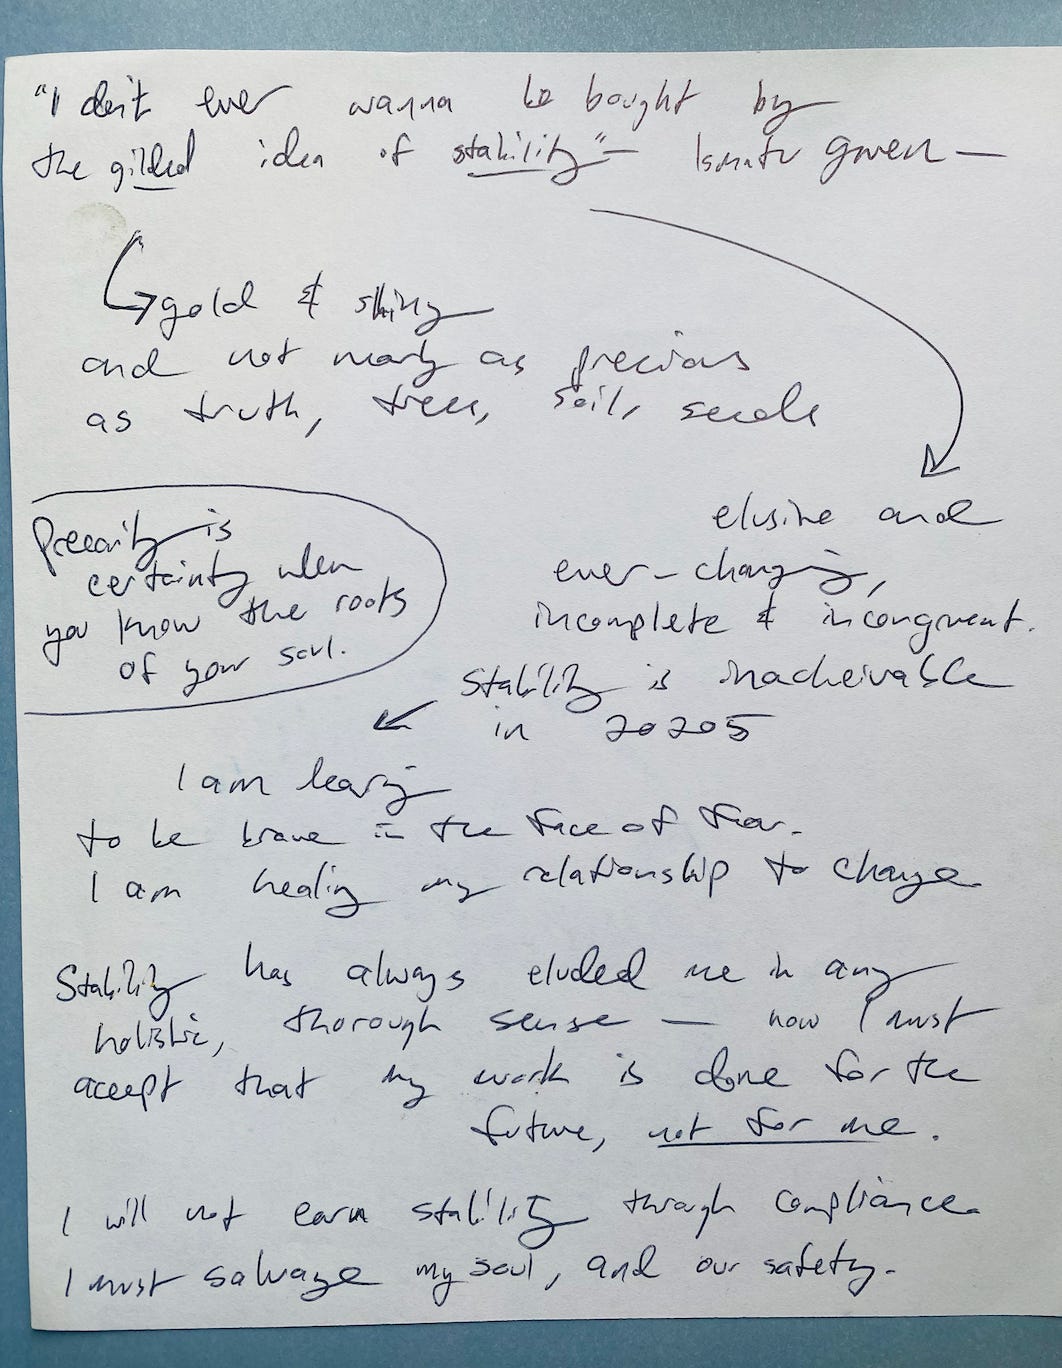 "I don't ever wanna be bought by
the gilded idea of stability" — Ismatu Gwen —
gold & shiny
and not nearly as precious
as truth, trees, soil, seeds
Precarity is
certainty when
you know the roots
of your soul.
elusive and
ever-changing,
incomplete & incongruent.
Stability is inacheivable
in 20205
I am learning
to be brave in the face of fear.
I am healing my relationship to change
Stability has always eluded me in any
holistic, thorough sense — now I must
accept that my work is done for the
future, not for me.
I will not earn stability through compliance.
I must salvage my soul, and our safety.